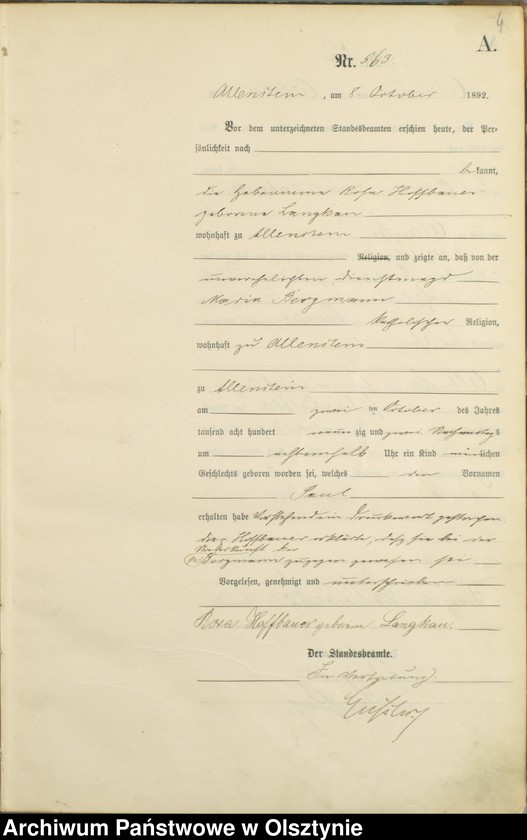 4
A.
Nr. 563.
Allenstein, am 8 October 1892.
Vor dem unterzeichneten Standesbeamten erschien heute, der Per-
sönlichkeit nach
bekannt,
die Hebeamme Rosa Hoffbauer
geborene Langkau
wohnhaft zu Allenstein
Religion, und zeigte an, daß von der
unverehelichten Dienstmagd
Maria Bergmann
katholischer Religion,
wohnhaft zu Allenstein
zu Allenstein
am zwei ten October des Jahres
tausend acht hundert neunzig und zwei Nachmittags
um achteinhalb Uhr ein Kind männlichen
Geschlechts geboren worden sei, welches den Vornamen
Paul
erhalten habe Vorstehend ein Druckwort gestrichen
Die Hoffbauer erklärte, daß sie bei der
Niederkunft der
Bergmann zugegen gewesen sei
Vorgelesen, genehmigt und unterschrieben
Rosa Hoffbauer geboren Langkau.
Der Standesbeamte.
In Vertretung.
Archiwum Państwowe w Olsztynie